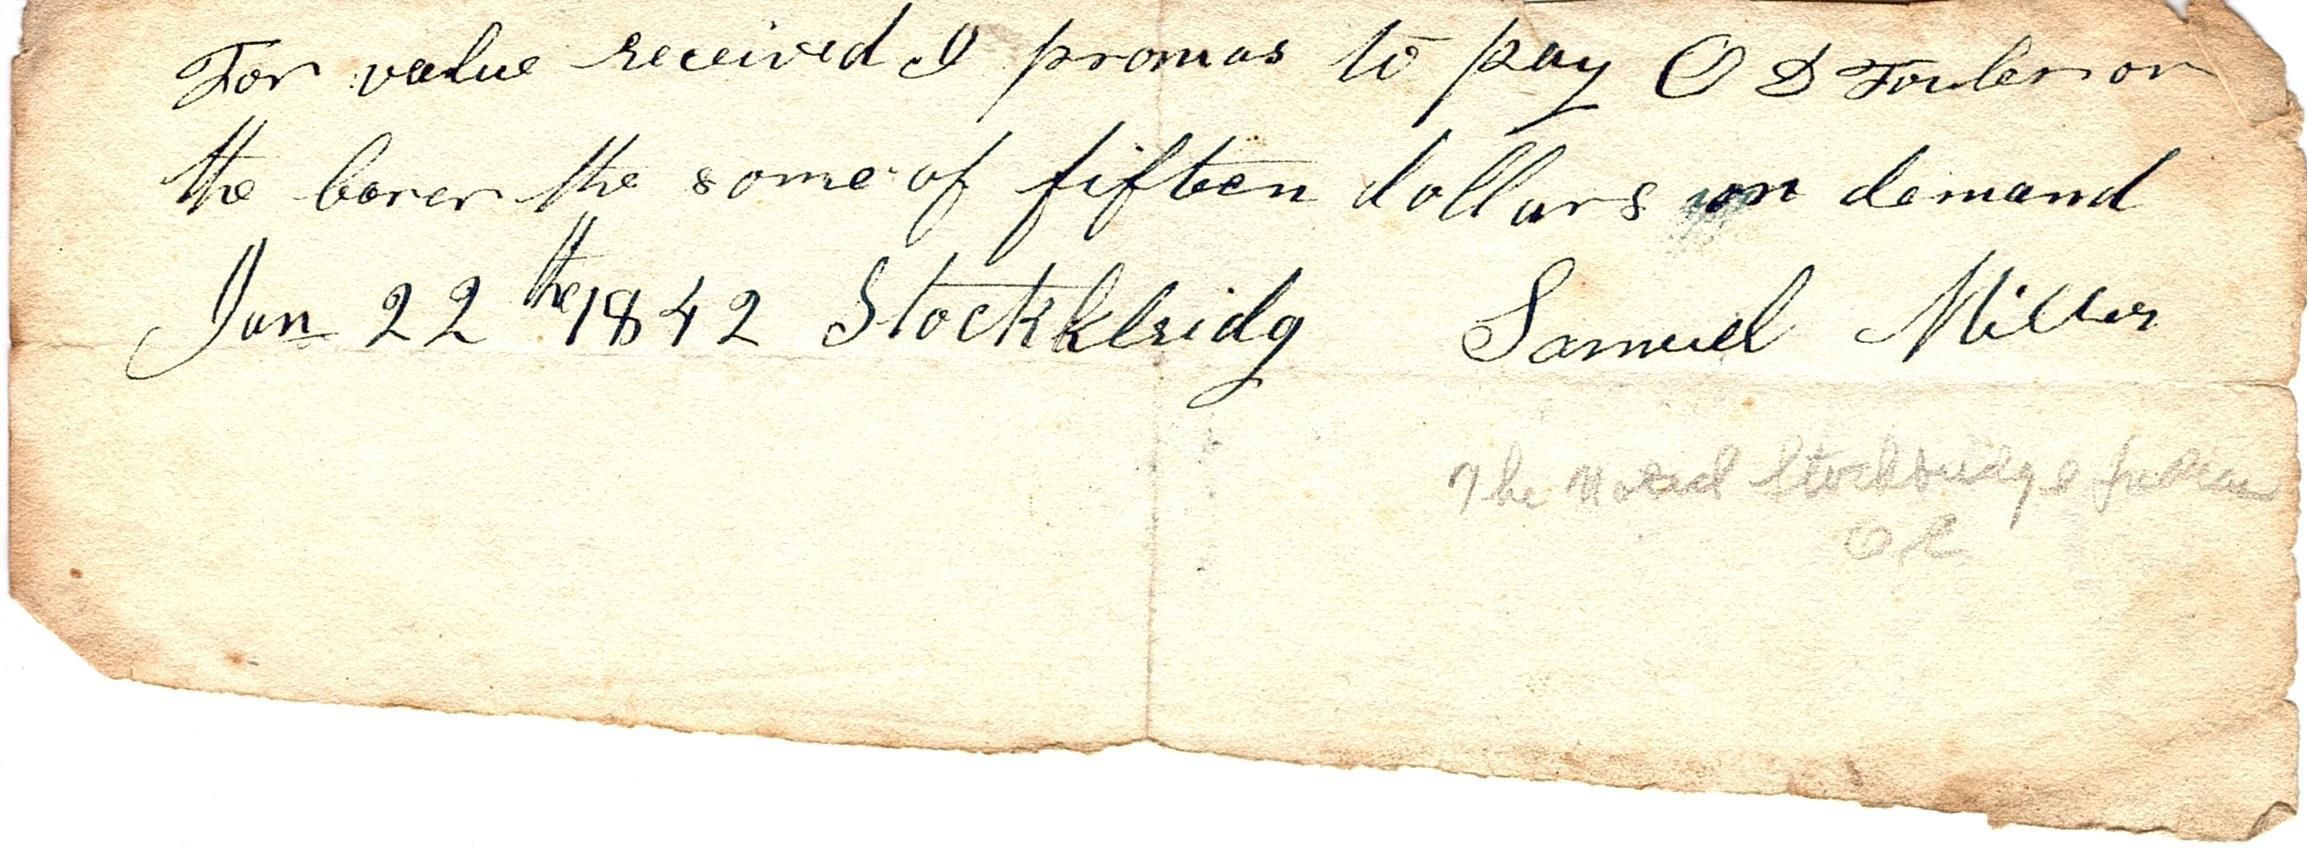 For value received I promas to pay O D Fowler or
the borer the some of fifteen dollars on demand
Jan 22 the 1842 Stockbridg Samuel Miller
The Noted Stockbridge Indian